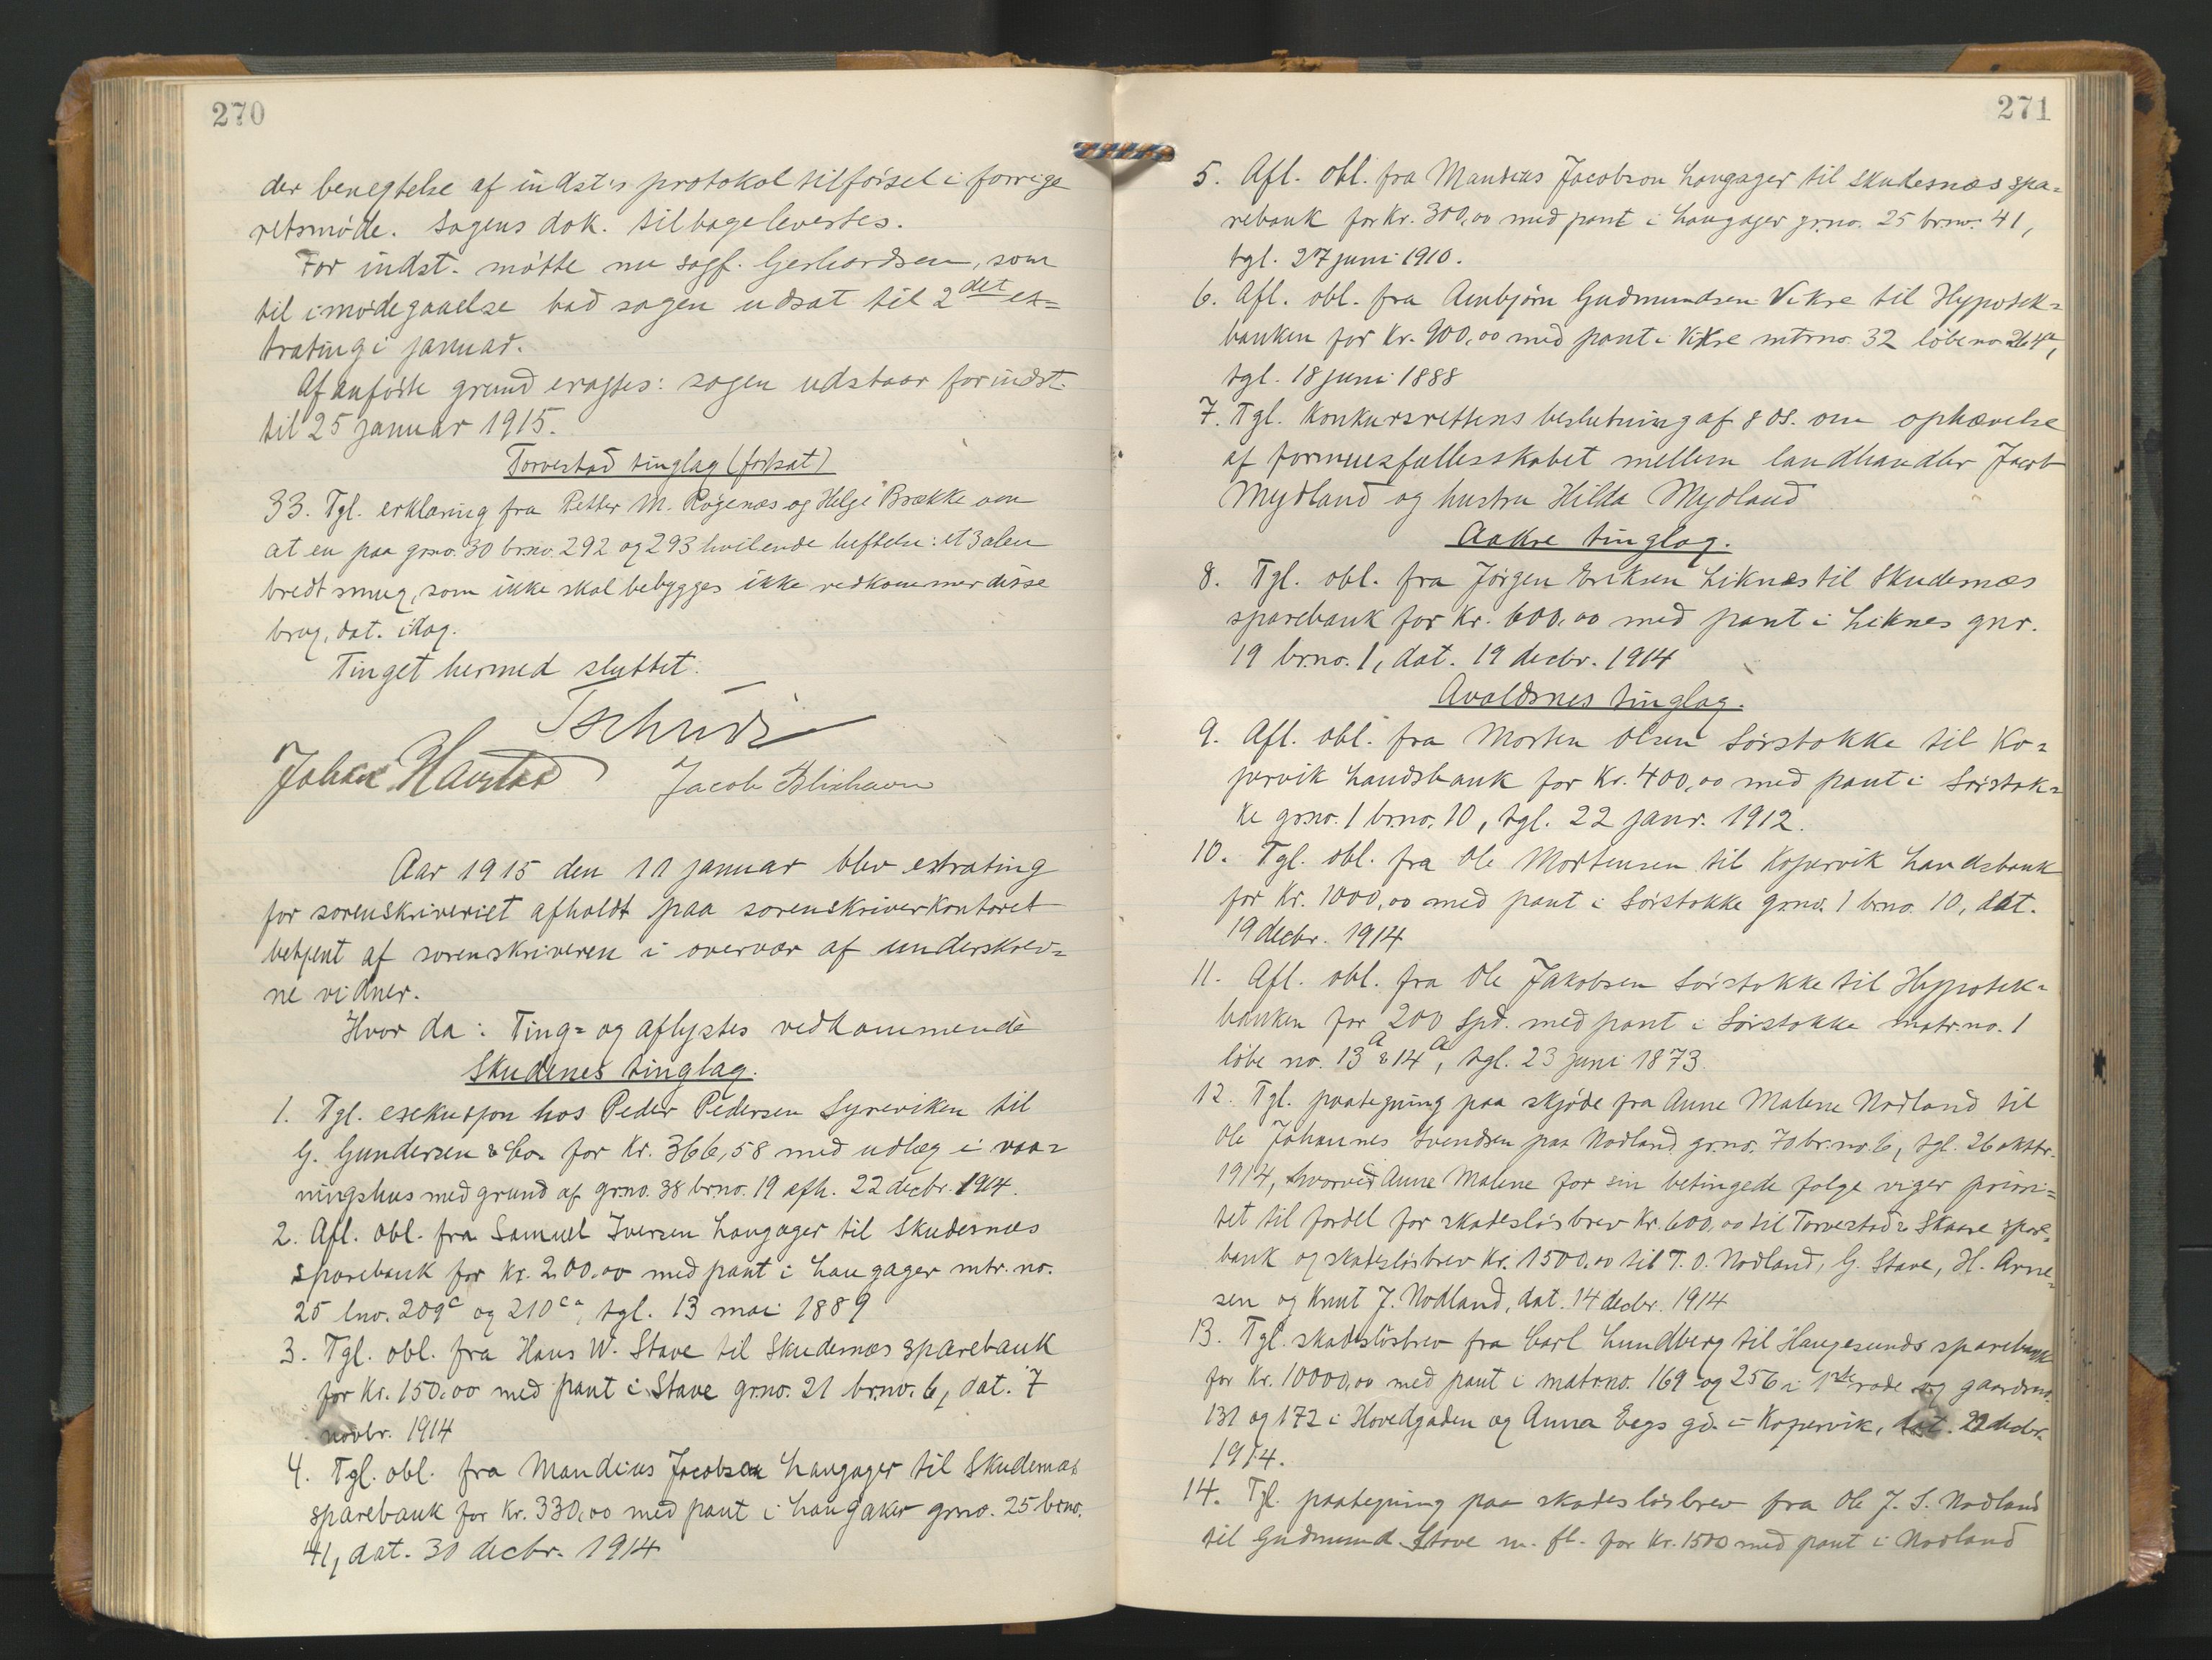 270
der benegtelse af indst's protokoltilførsel i forrige
retsmøde. Sagens dok. tilbageleveretes.
For indst. møtte nu sagf. Gerhardsen, som
til imødegaaelse bad sagen udsat til 2det ex=
trating i januar.
Af anførte grund eragtes: sagen udstaar for indst.
til 25 januar 1915.
Torvestad tinglag (fortsat)
33. Tgl. erklæring fra Petter M. Røgenæs og Helge Brække om
at en paa grno. 30 brno. 292 og 293 hvilende heftelse: et 3 alen
bredt smug, som ikke skal bebygges ikke vedkommer disse
brug, dat. idag.
Tinget hermed sluttet.
Tschudi
Johan Havstad Jacob Blixhavn
Aar 1915 den 11 januar blev extrating
for sorenskriveriet afholdt paa sorenskriverkontoret
betjent af sorenskriveren i overvær af underskrev=
ne vidner.
Hvor da: Ting= og aflystes vedkommende
Skudenes tinglag.
1. Tgl. exekusjon hos Peder Pedersen Syreviken til
G. Gundersen & Co. for Kr. 366,58 med udlæg i vaa=
ningshus med grund af grno. 38 brno. 19 afh. 22 decbr. 1914.
2. Afl. obl. fra Samuel Iversen Langager til Skudesnæs
sparebank for Kr. 200.00 med pant i Langager mtr. no.
25 lno. 209c og 210ca, tgl. 13 mai 1889
3. Tgl. obl. fra Hans W. Stave til Skudesnæs sparebank
for Kr. 150.00 med pant i Stave grno. 21 brno. 6, dat. 7
novbr. 1914
4. Tgl. obl. fra Mandius Jacobsen Langager til Skudesnæs
sparebank for Kr. 330,00 med pant i Langaker grno. 25 brno.
41, dat. 30 decbr. 1914
271
5. Afl. obl. fra Mandius Jacobson Langager til Skudesnæs spa=
rebank for Kr. 300,00 med pant i Langager grno. 25 brno. 41,
tgl. 27 juni 1910.
6. Afl. obl. fra Arnbjørn Gudmundsen Vikre til Hypotek=
banken for Kr. 900,00 med pant i Vikre mtrno. 32 løbeno 264a,
tgl. 18 juni 1888
7. Tgl. Konkursrettens beslutning af 8 ds. om ophævelse
af formuesfællesskabet mellem landhandler Jacob
Mydland og hustru Hilda Mydland
Aakre tinglag.
8. Tgl. obl. fra Jørgen Eriksen Liknes til Skudesnæs
sparebank for Kr. 600,00 med pant i Liknes gnr.
19 brno. 1, dat. 19 decbr. 1914
Avaldsnes tinglag.
9. Afl. obl. fra Morten Olsen Sørstokke til Ko=
pervik Landsbank for Kr. 400,00 med pant i Sørstok=
ke grno. 1 brno. 10, tgl. 22 janr. 1912.
10. Tgl. obl. fra Ole Mortensen til Kopervik Landsbank
for Kr. 1000,00 med pant i Sørstokke grno. 1 brno. 10, dat.
19 decbr. 1914
11. Afl. obl. fra Ole Jakobsen Sørstokke til Hypotek=
banken for 200 Spd. med pant i Sørstokke matr.no. 1
løbe no. 13a & 14a, tgl. 23 juni 1873.
12. Tgl. paategning paa skjøde fra Anne Malene Nodland til
Ole Johannes Svendsen paa Nodland grno. 70 br.no. 6, tgl. 26 oktbr.
1914, hvorved Anne Malene for sin betingede folge viger priori=
tet til fordel for skadesløsbrev Kr. 600,00 til Torvestad & Skaare spare=
bank og skadesløsbrev Kr. 1500,00 til T. O. Nodland, G. Stave, H. Arne=
sen og Knut J. Nodland, dat. 14 decbr. 1914
13. Tgl. skadesløsbrev fra Carl Lundberg til Haugesunds sparebank
for Kr. 10000,00 med pant i matr.no. 169 og 256 i 1ste rode og gaardsno.
131 og 172 i Hovedgaden og Anna Eegs gd. i Kopervik, dat. 22 decbr.
1914.
14. Tgl. paategning paa skadesløsbrev fra Ole J. S. Nodland
til Gudmund Stave m. fl. for Kr. 1500 med pant i Nodland